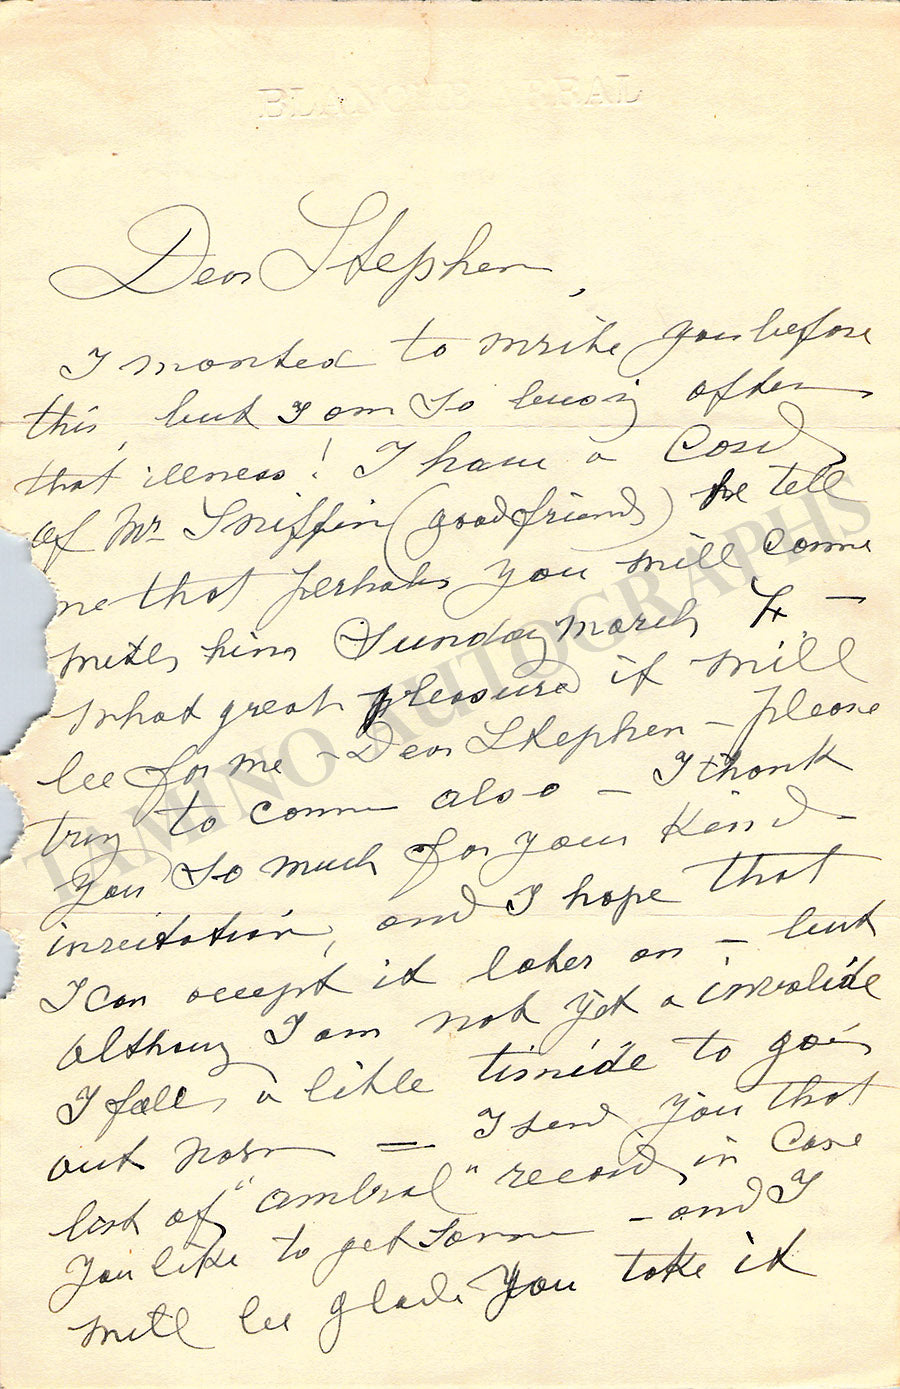 BLANCHE ARRAL
Dear Stephen,
I wanted to write you before
this, but I am so busy after
that illness! I have a Card
of Mr Sniffin (good friend) he tell
me that perhaps you will come
with him Sunday March 4 –
What great pleasure it will
be for me – Dear Stephen – please
try to come also – I thank
you so much for your Kind –
invitation, and I hope that
I can accept it later on – but
althoug I am not yet a invalide
I fell a little timide to go
out now = I send you that
list of "Ambral" record, in case
you like to get some – and I
will be glad you take it
TAMINO AUTOGRAPHS